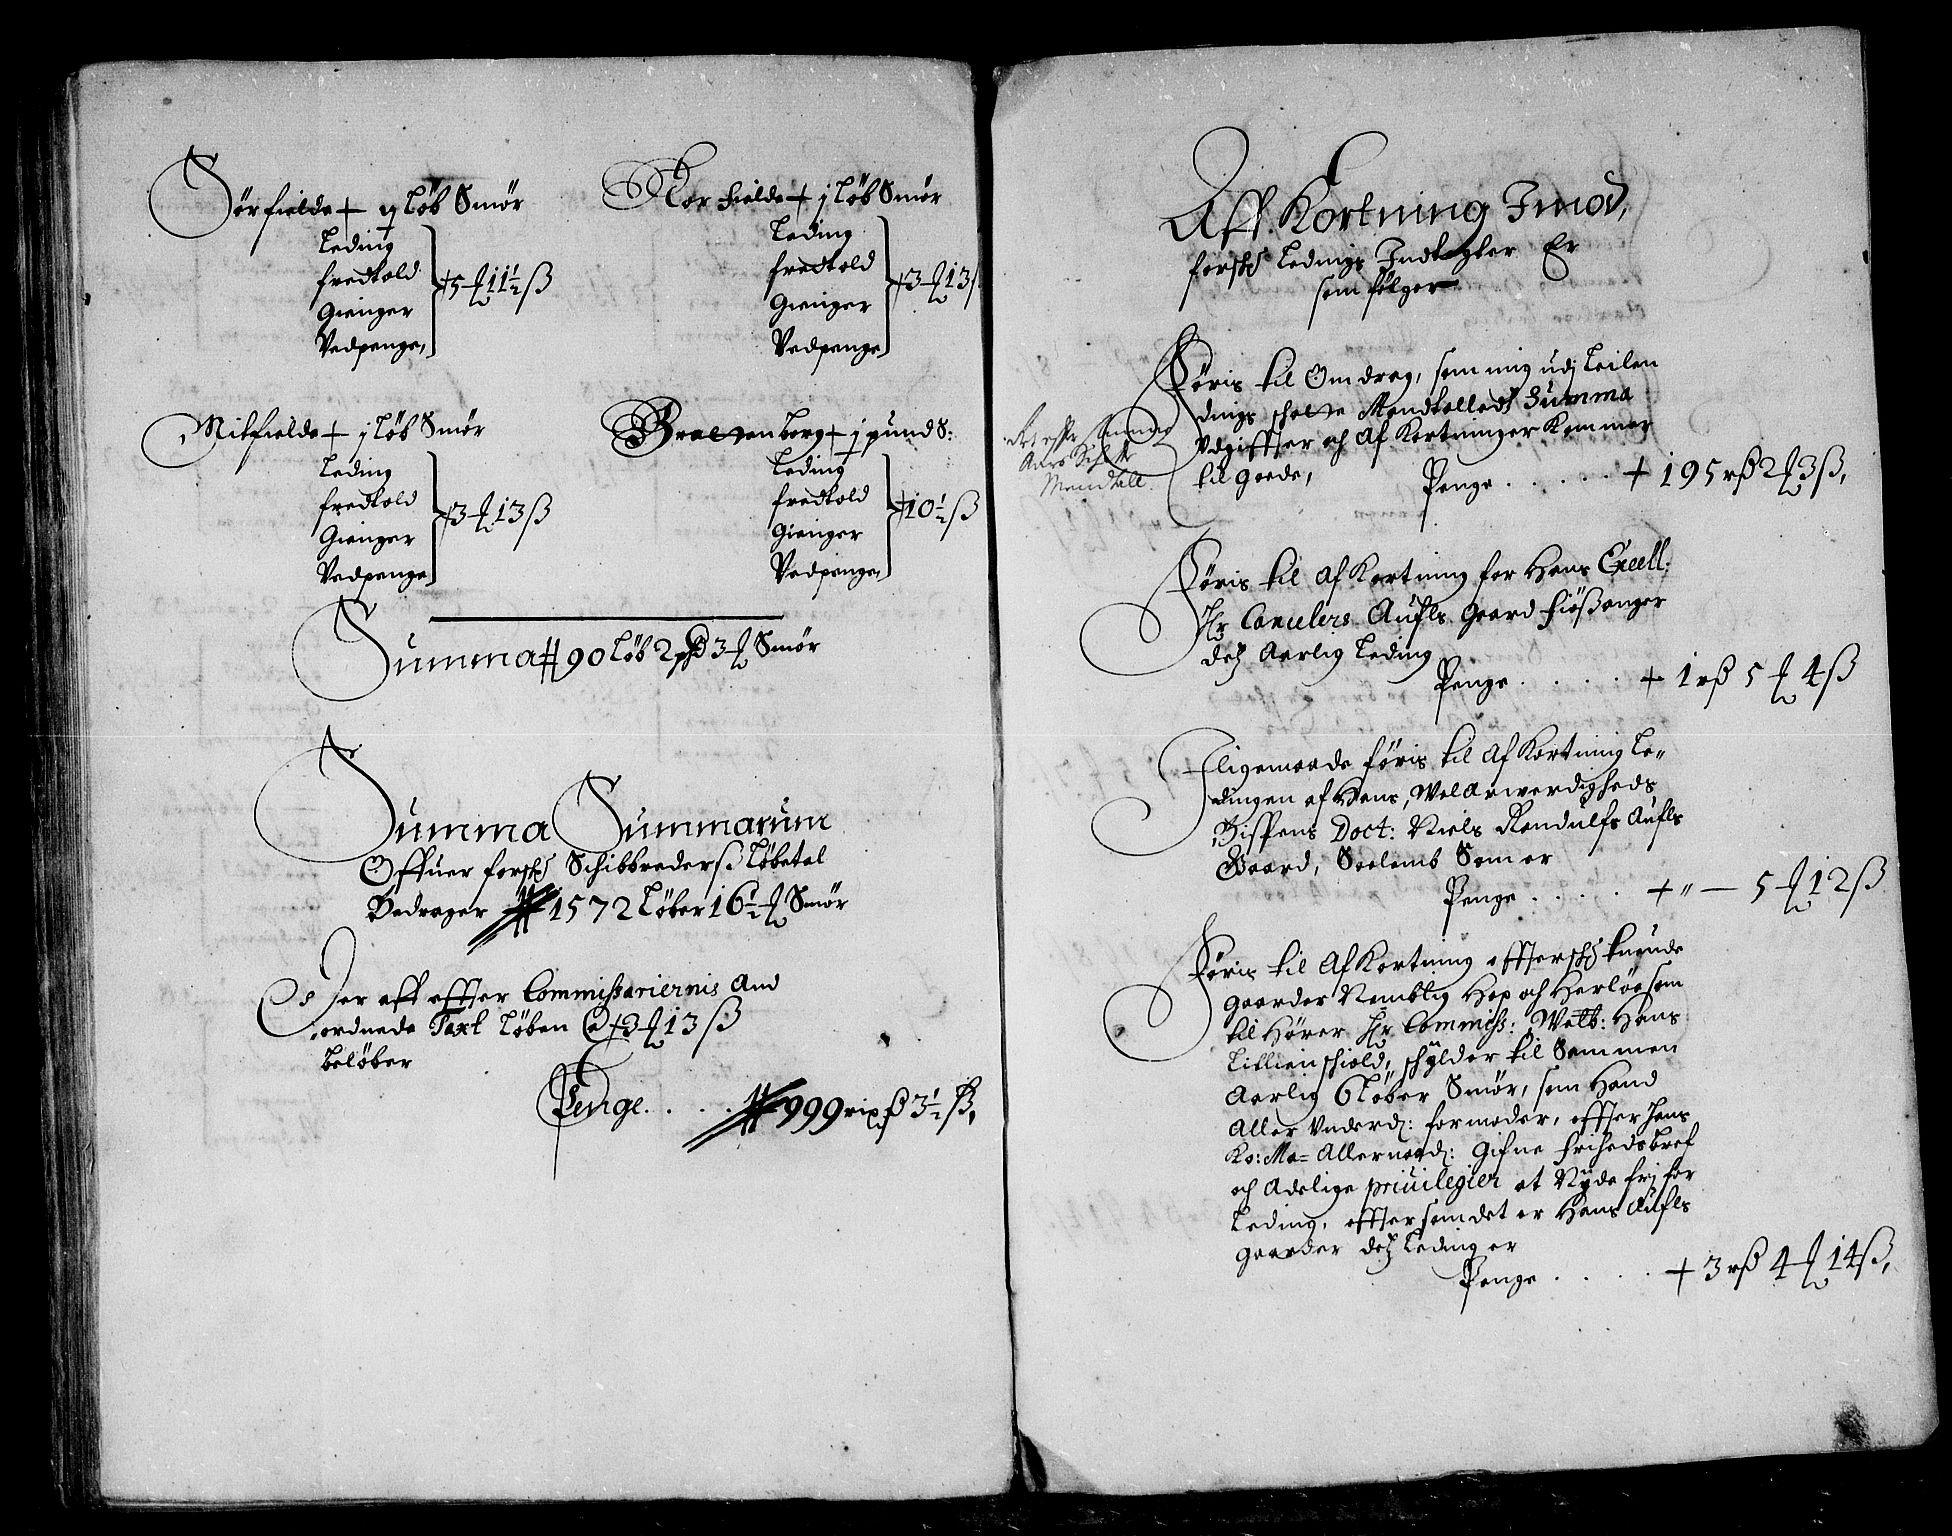 Sörfielde + ij Löb Smör
Leding
fredtold
Gienger
Vedpenge,
+ 5 ℔ 11½ ß
Norfielde + j Löb Smör
Leding
fredtold
Gienger
Vedpenge
+ 3 ℔ 13
Mitfielde + j Löb Smör
Leding
fredtold
Gienger
Vedpenge
+ 3 ℔ 13 ß
Bratzenborg + j pund S:
Leding
fredtold
Gienger
Vedpenge,
+ 10½ ß
Summa # 90 Löb 2 pd 3 ℔ Smör
Summa Summarum
Offuer forschr Schibbrederß Löbetal
Bedrager # 1572 Löber 16½ ℔ Smör
Der aff effter Commißariernis And
ordnede Taxt Löben @ + 3 ℔ 13 ß
belöber
Penge. . . . # 999 rixß 3½ ß,
Aff Kortning Imod,
forschr Ledings Indtegter Er
som fölger
Föris til Omdrag, som mig udj Leilen
dings schatte Mandtalledt Summa
Udgiffter och Af Kortninger kommer
til gode,
Penge . . . . . + 195 rß 2 ℔ 3 ß,
effter
Schatte
Mandtall.
Föris til Af Kortning for Hans Excell:
Hr Cancelers Aufls Gaard Fiößanger
detz Aarlig Leding
Penge . . . . + 1 rß 5 ℔ 4 ß
Iligemaade föris til Af Kortning Le„
dingen af Hans, Wel Ærwerdigheds
Bispens Doct: Niels Randulfs Aufls
Gaard, Seelemb Som er
Penge . . . . + „ — 5 ℔ 12 ß
Föris til Af Kortning effterschr tuende
gaarder Nemblig Hop och Herlöe som
til Hörer Hr Commiß: Welb: Hans
Lillienschiold, schylder til Sammen
Aarlig 6 Löber Smör, som Hand
Aller Underd: formoder, effter Hans
Ko: Ma= Allernaad: Gifne frihedsbref
och Adelige privilegier at Nyde frj for
Leding, effter som det er Hans Aufls
gaarder detz Leding er
Penge . . . . + 3 rß 4 ℔ 14 ß,